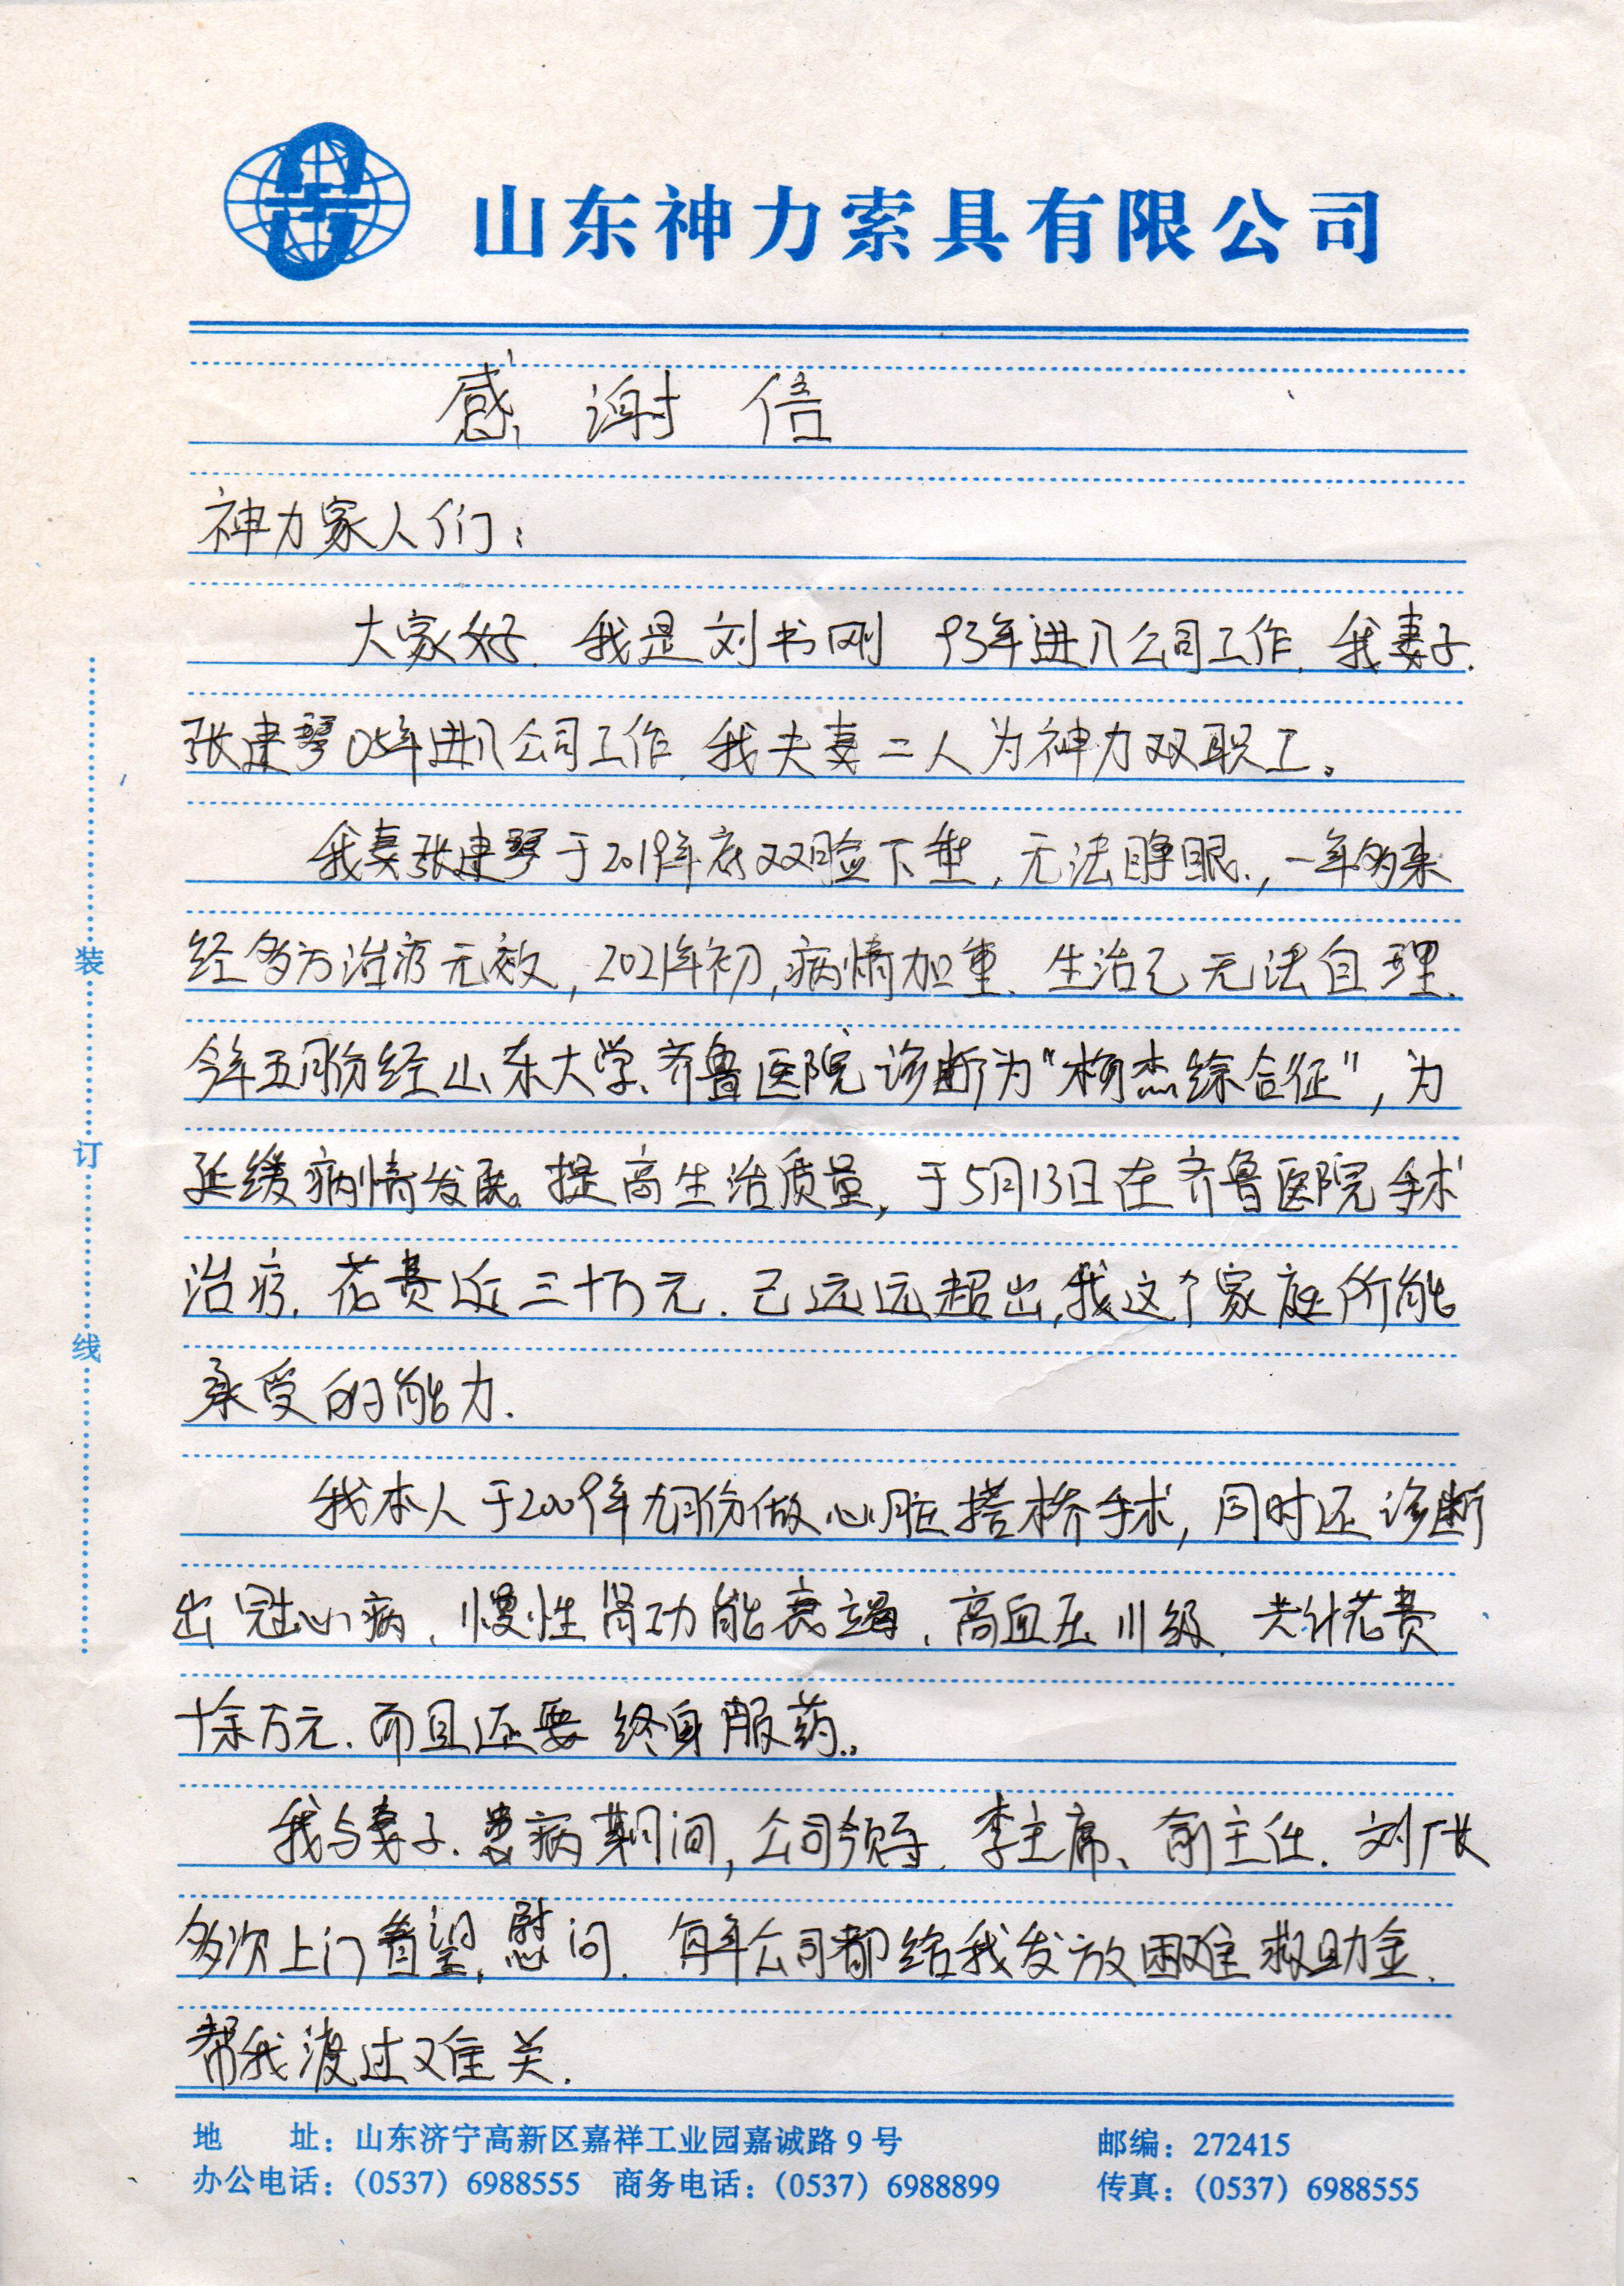 山东神力索具有限公司
感谢信
神力家人们：
大家好.我是刘书刚 93年进入公司工作.我妻子.
张建琴05年进入公司工作.我夫妻二人为神力双职工。
我妻张建琴于2019年底双眼睑下垂，无法睁眼.，一年多来
经多方治疗无效，2021年初，病情加重.生活已无法自理.
今年五月份经山东大学、齐鲁医院诊断为“梅杰综合征”，为
延缓病情发展.提高生活质量，于5月13日在齐鲁医院手术
治疗.花费近三十万元.已远远超出，我这个家庭所能
承受的能力.
我本人于2009年九月份做心脏搭桥手术，同时还诊断
出冠心病、慢性肾功能衰竭、高血压III级.共计花费
十余万元.而且还要终身服药..
我与妻子.患病期间，公司领导.李主席、俞主任.刘厂长
多次上门看望，慰问.每年公司都给我发放困难救助金.
帮我渡过难关.
装
订
线
地 址：山东济宁高新区嘉祥工业园嘉诚路9号 邮编：272415
办公电话：（0537）6988555 商务电话：（0537）6988899 传真：（0537）6988555